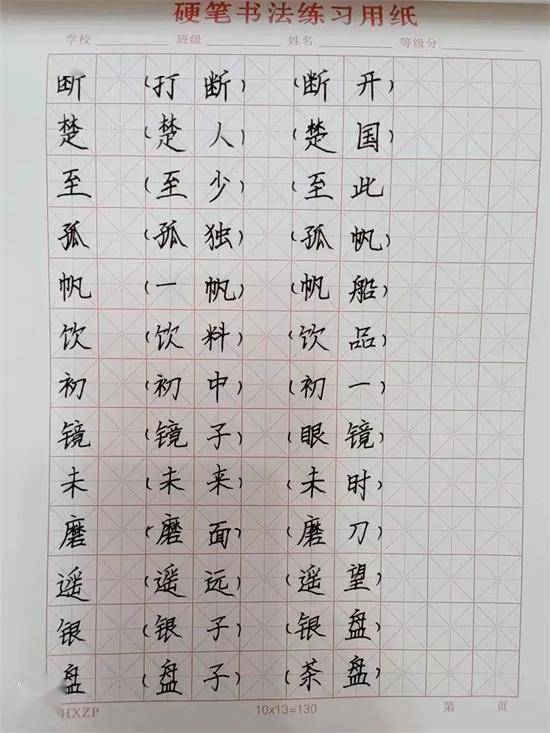 硬笔书法练习用纸
学校 班级 姓名 等级分
断 (打断) (断开)
楚 (楚人) (楚国)
至 (至少) (至此
孤 (孤独) (孤帆)
帆 (一帆) (帆船)
饮 (饮料) (饮品)
初 (初中) (初一)
镜 (镜子) (眼镜)
未 (未来) (未时)
磨 (磨面) (磨刀)
遥 (遥远) (遥望)
银 (银子) (银盘)
盘 (盘子) (茶盘)
HXZP 10x13=130 第 页